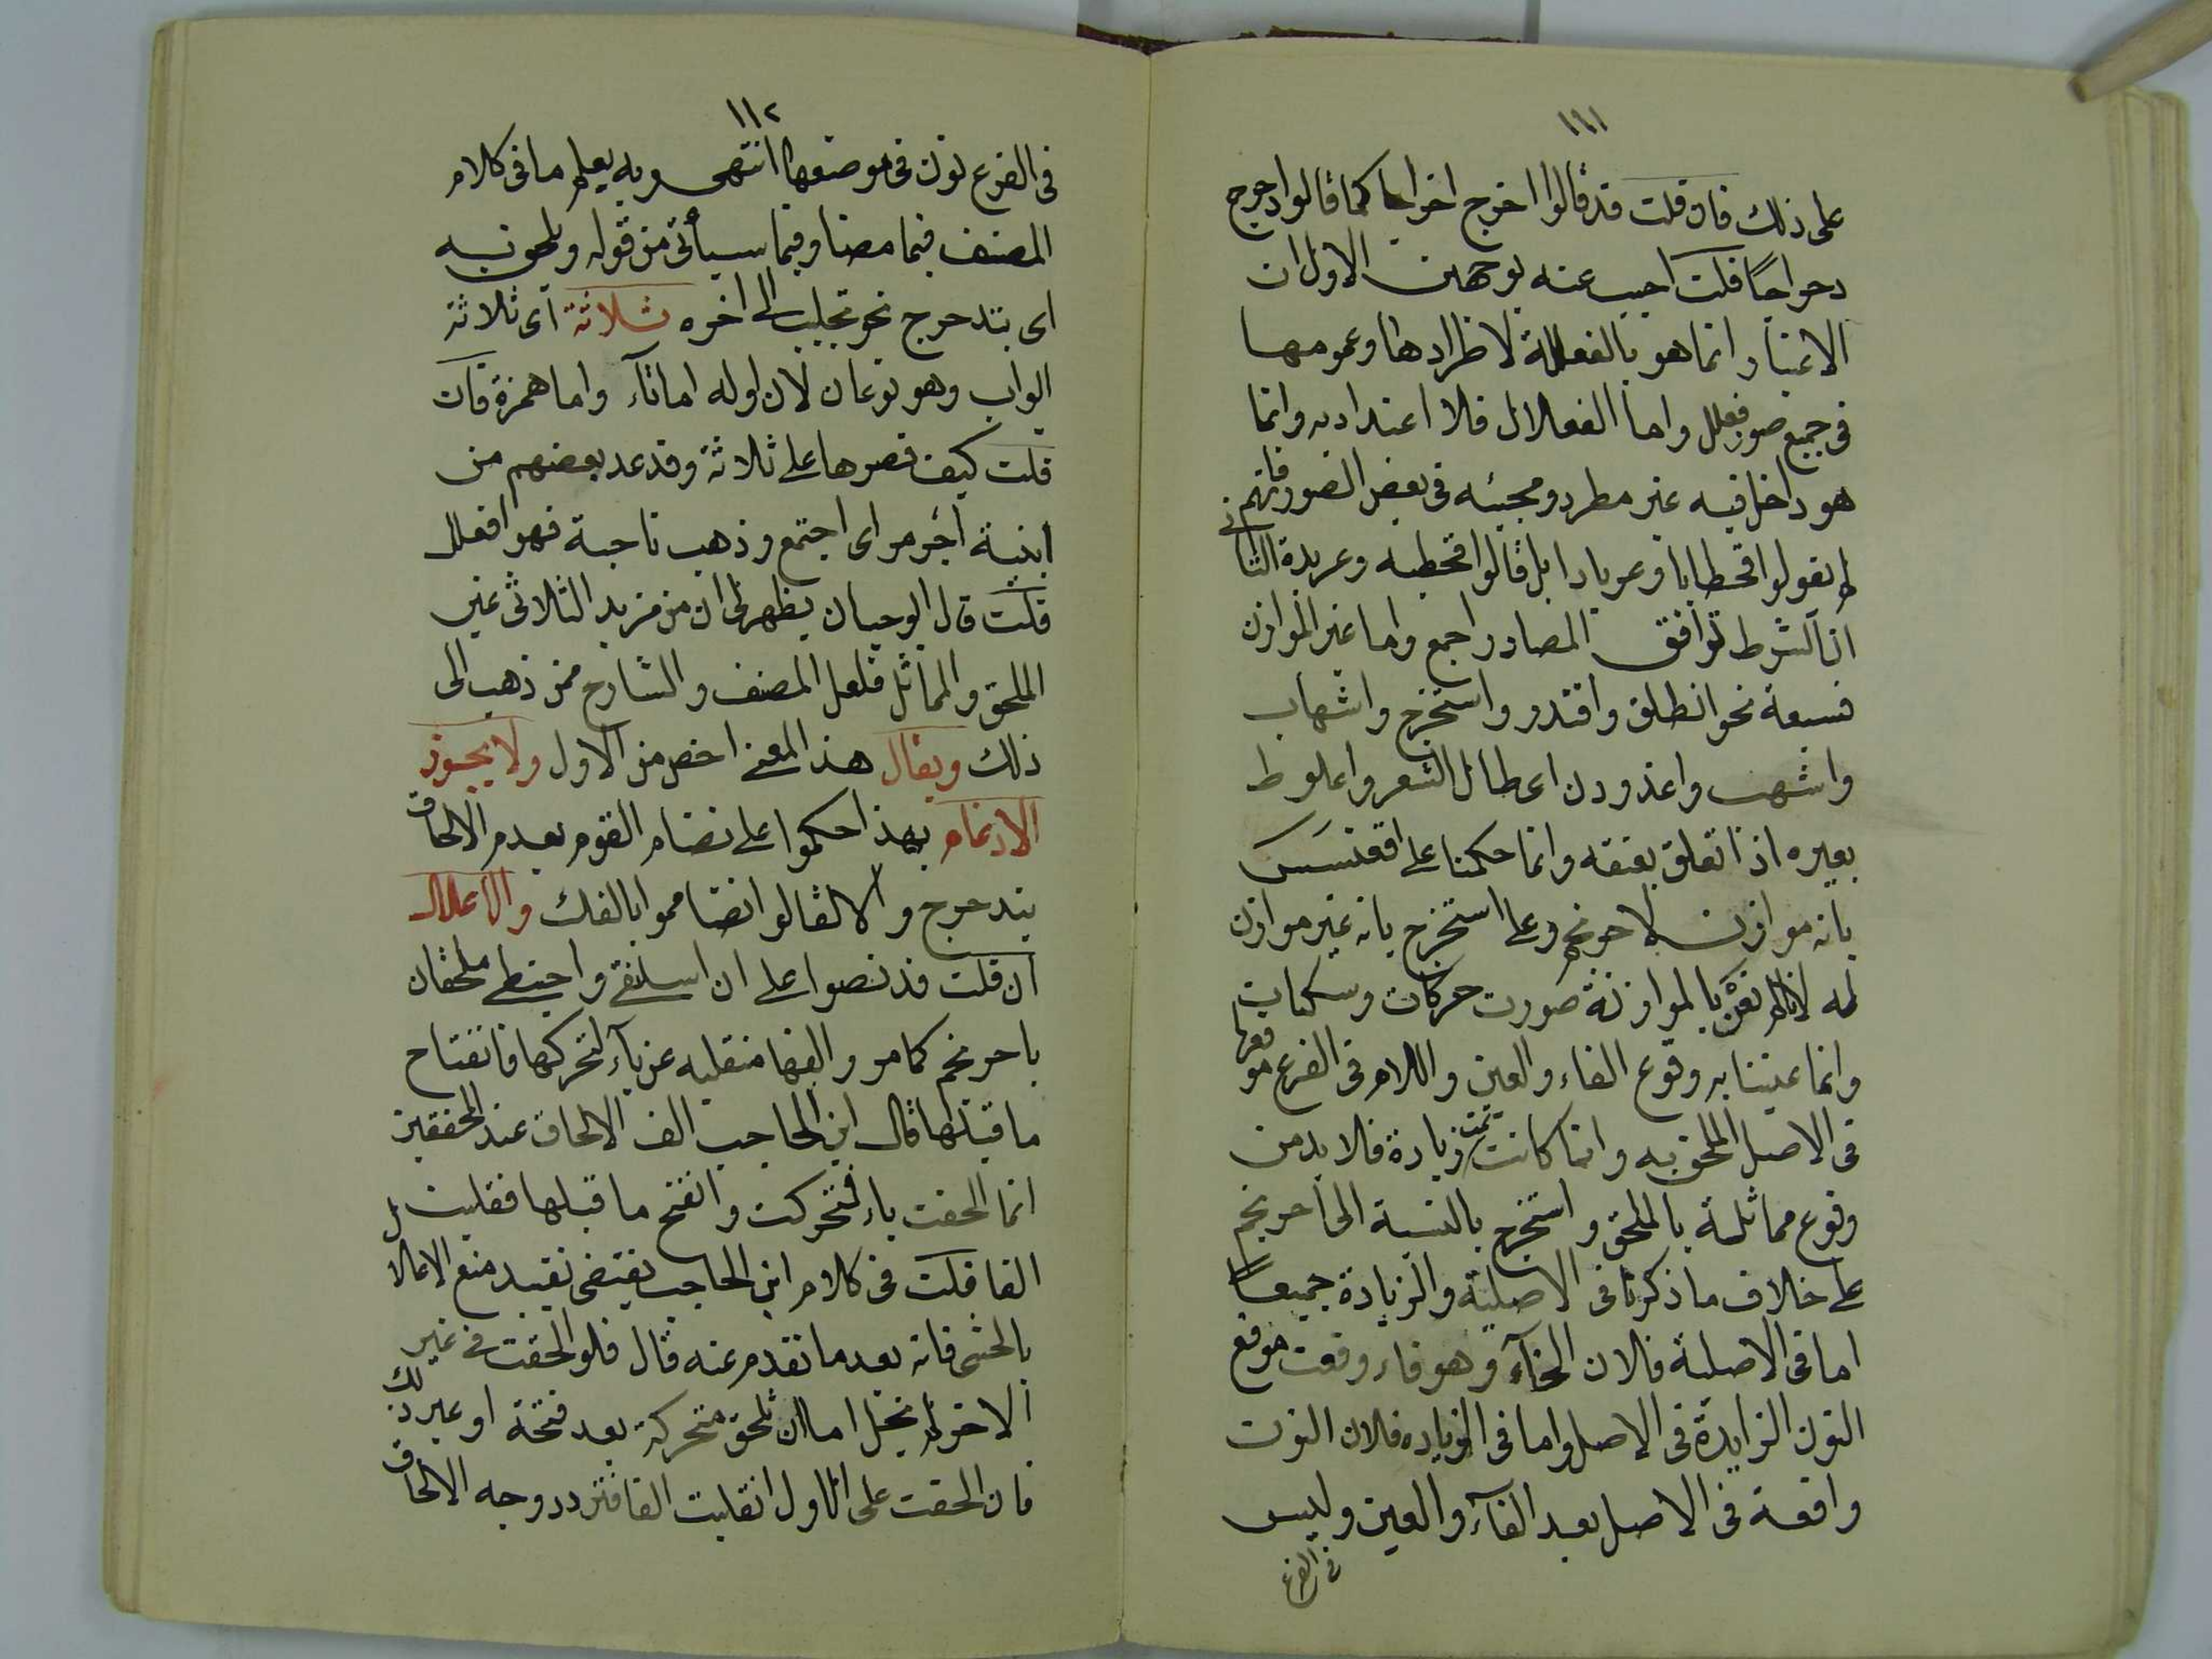 ١١١
على ذلك فان قلت قد قالوا اخرج اخراجا كما قالوا دحرج
دحراجًا قلت اجيب عنه بوجهين الاول ان
الاعتبار انما هو بالفعللة لاطرادها وعمومها
فى جميع صور فعلل واما الفعلال فلا اعتداد به وانما
هو داخل فيه غير مطرد ومجيئه فى بعض الصور فانهم
لم يقولوا قحطابا وعربادا بل قالوا قحطبه وعربدة الثانى
ان الشرط توافق المصادر اجمع واما غير الموازن
فسبعة نحو انطلق واقتدر واستخرج واشهاب
واشهب واغدودن اى طال الشعر واعلوط
بعيره اذا تعلق بعنقه وانما حكمنا على اقعنسس
بانه موازن لاحرنجم وعلى استخرج بانه غير موازن
له لانا لم نعن بالموازنة صورت حركات وسكنات
وانما عنينا به وقوع الفاء والعين واللام فى الفرع موقعها
فى الاصل الملحق به وانما كانت ثمت زيادة فلا بد من
وقوع مماثلة بالملحق واستخرج بالنسبة الى احرنجم
على خلاف ما ذكرنا فى الاصلية والزيادة جميعاً
اما فى الاصلية فلان الخآء وهو فاء وقعت موقع
النون الزايدة فى الاصل واما فى الزياده فلان النون
واقعة فى الاصل بعد الفآء والعين وليس
فى الفرع
١١٢
فى الفرع نون فى موضعها انتهى وبه يعلم ما فى كلام
المصنف فيما مضا وفيما سيأتى من قوله ويلحق به
اى بتدحرج نحو تجلبب الى اخره ثلاثة اى ثلاثة
ابواب وهو نوعان لان اوله اما تآء واما همزة فان
قلت كيف قصرها على ثلاثة وقد عد بعضهم من
ابنية اجرمز اى اجتمع وذهب ناحية فهو افعلل
قلت قال ابو حيان يظهر لى ان من مزيد الثلاثى غير
الملحق والمماثل فلعل المصنف والشارح ممن ذهب الى
ذلك ويقال هذا المعنى اخص من الاول ولا يجوز
الادغام بهذا حكموا على تضام القوم بعدم الالحاق
بتدحرج والا لقالوا تضامموا بالفك والاعلال
ان قلت قد نصوا على ان اسلنقى واحبنطى ملحقان
باحرنجم كما مر والفها منقلبه عن يآء لتحركها وانفتاح
ما قبلها قال ابن الحاجب الف الالحاق عند المحققين
انما الحقت ياء فتحركت وانفتح ما قبلها فقلبت
الفا قلت فى كلام ابن الحاجب يقتضى تقييد منع الاعلال
بالحشى فانه بعد ما تقدم عنه قال فلو الحقت فى غير
الاخر لم يخل اما ان تلحق متحركة بعد فتحة او غير ذلك
فان الحقت على الاول انقلبت الفا فتردد وجه الالحاق